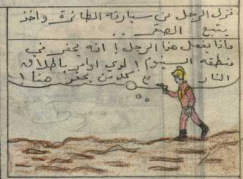 نزل الرجل من سيارته الطائرة واخذ
يتبع الصقر ..
ماذا يفعل هذا الرجل ! انه يحفر في
منطقة ! لدي اوامر باطلاق
النار على كل من يحفر هنا !